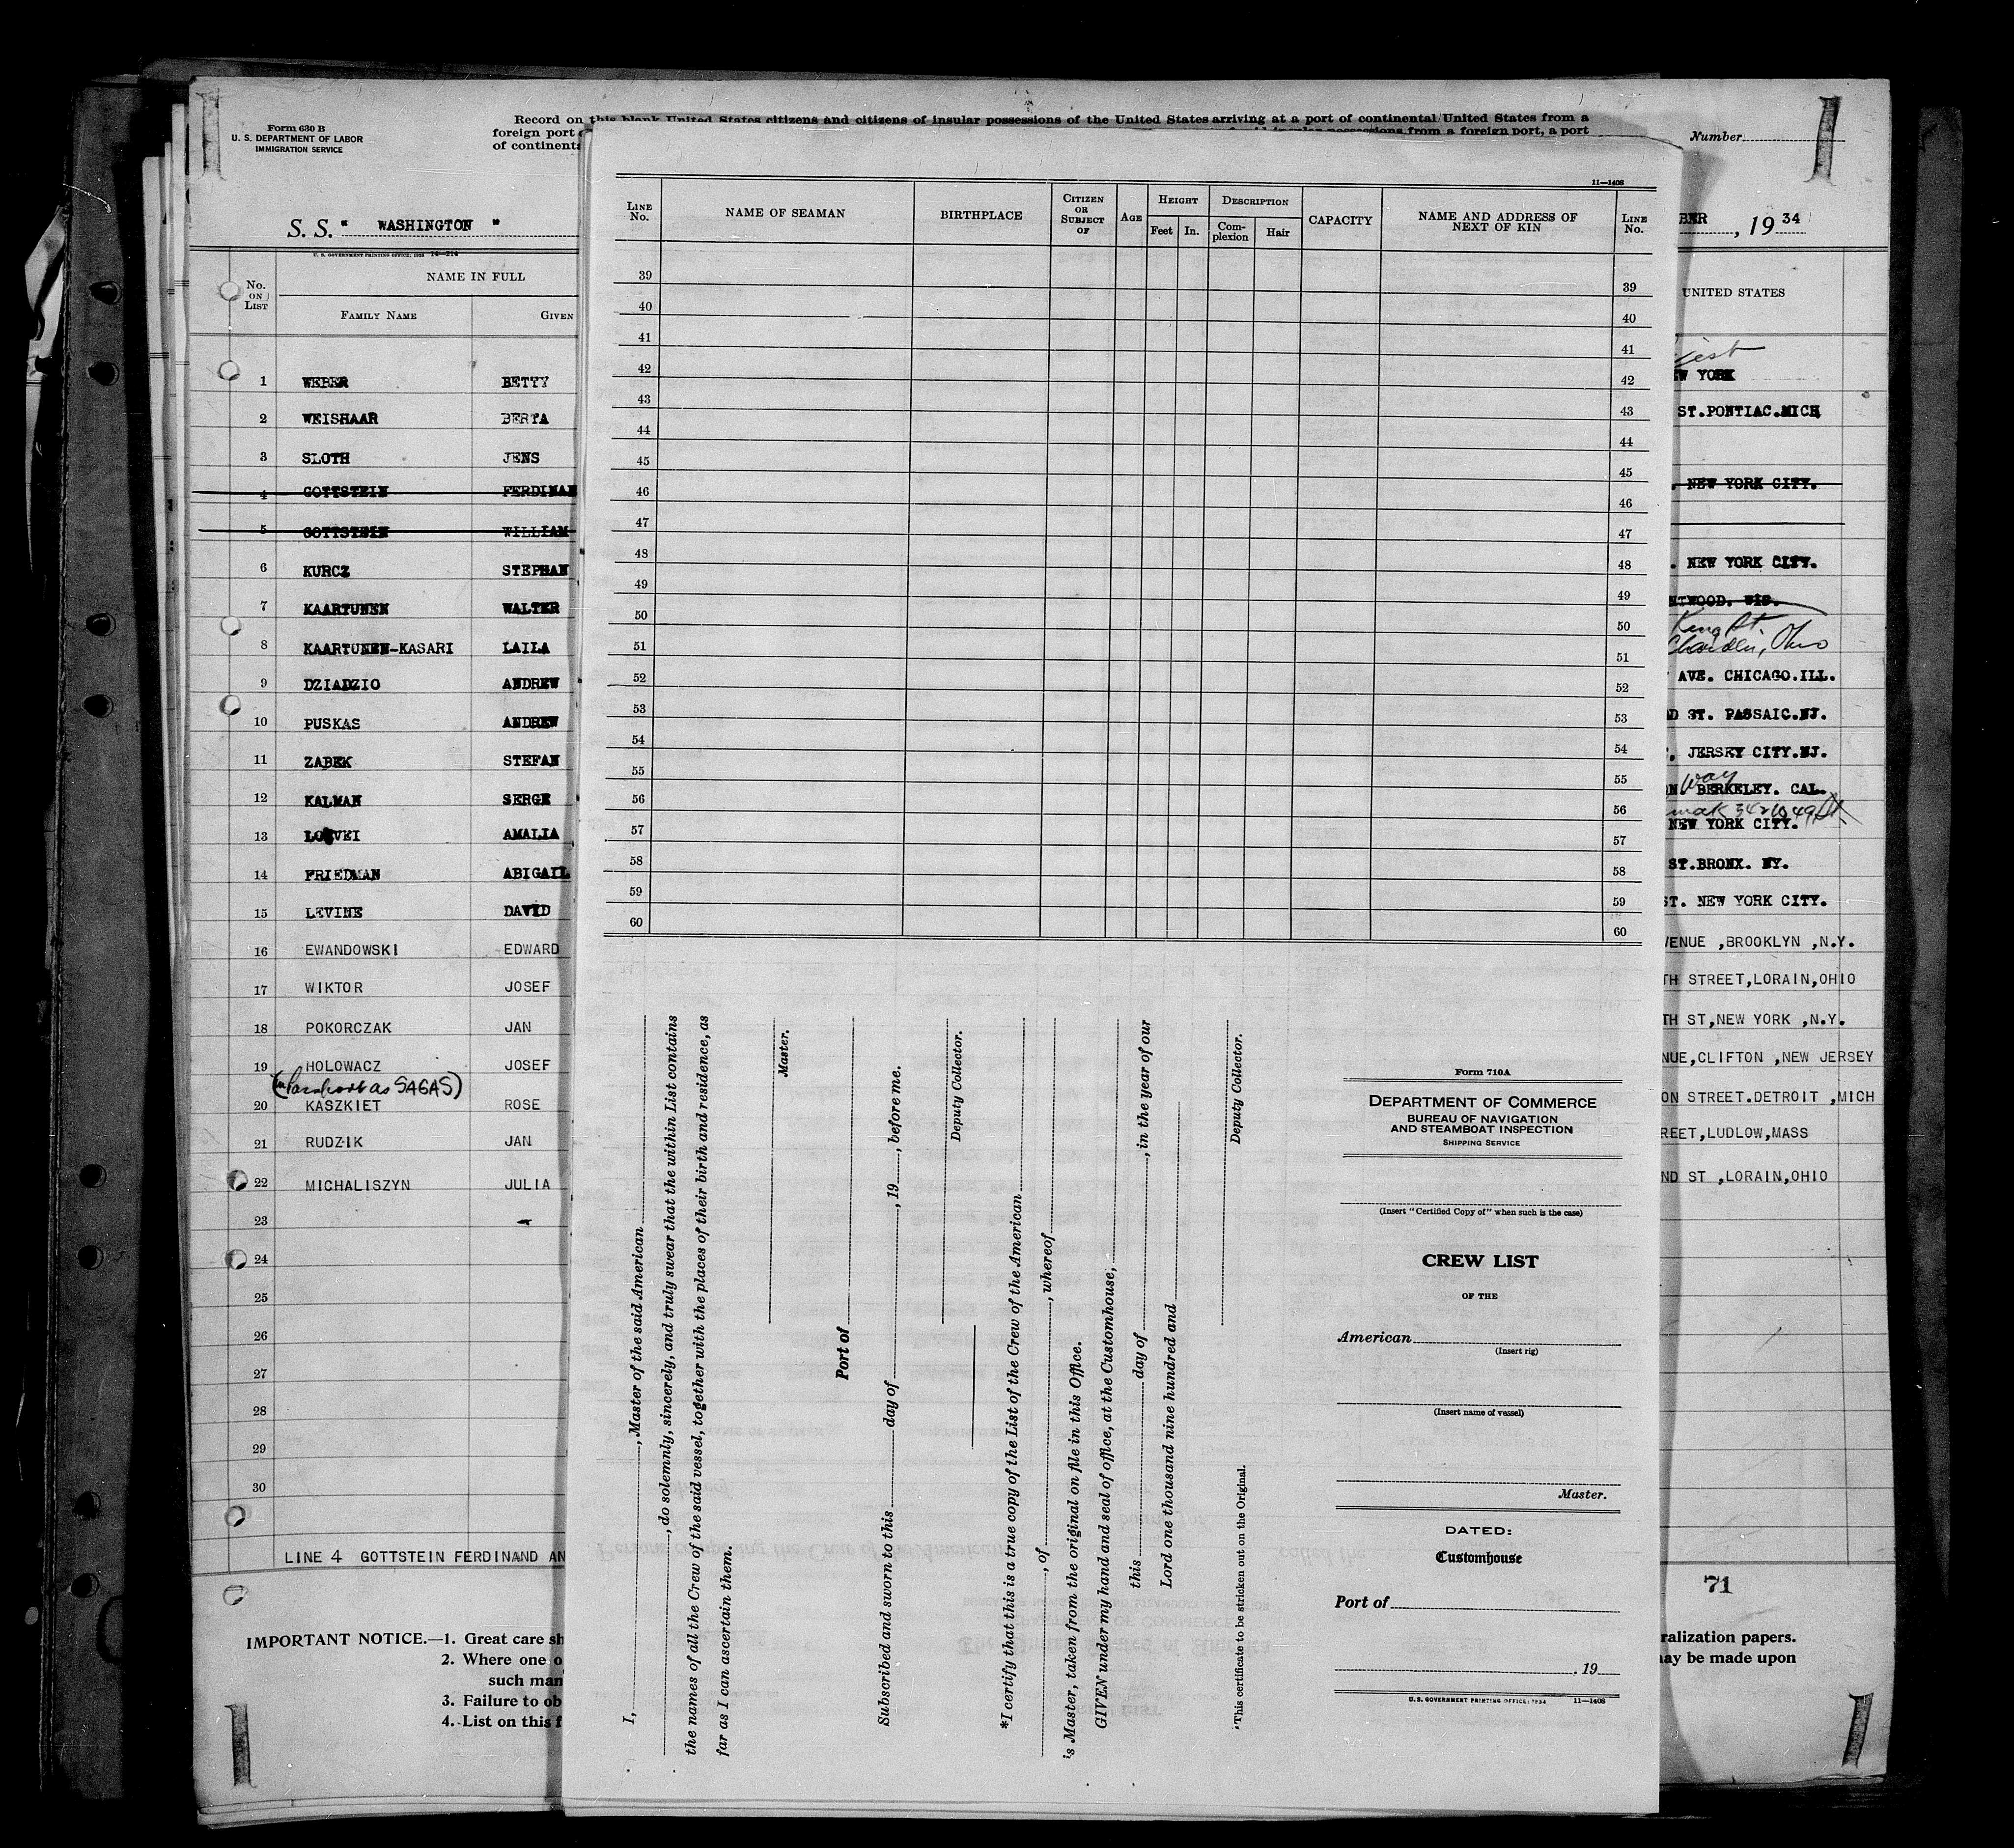 Form 630 B
U. S. DEPARTMENT OF LABOR
IMMIGRATION SERVICE
Record on this blank United States citizens and citizens of insular possessions of the United States arriving at a port of continental United States from a
foreign port insular possessions from a foreign port, a port
of continenta
Number
S. S. " WASHINGTON "
BER , 19 34
U. S. GOVERNMENT PRINTING OFFICE: 1928 14—214
No. ON LIST
NAME IN FULL
FAMILY NAME GIVEN
UNITED STATES
1 WEBER BETTY W YORK
2 WEISHAAR BERTA ST.PONTIAC.MICH
3 SLOTH JENS
4 GOTTSTEIN FERDINAN . NEW YORK CITY.
5 GOTTSTEIN WILLIAM
6 KURCZ STEPHAN . NEW YORK CITY.
7 KAARTUNEN WALTER NTWOOD. WIS.
King St
8 KAARTUNEN-KASARI LAILA , Ohio
9 DZIADZIO ANDREW AVE. CHICAGO.ILL.
10 PUSKAS ANDREW D ST. PASSAIC.NJ.
11 ZABEK STEFAN . JERSEY CITY.NJ.
Way
12 KALMAN SERGE ON BERKELEY. CAL.
13 LOEVEI AMALIA NEW YORK CITY.
14 FRIEDMAN ABIGAIL ST.BRONX. NY.
15 LEVINE DAVID ST. NEW YORK CITY.
16 EWANDOWSKI EDWARD VENUE ,BROOKLYN ,N.Y.
17 WIKTOR JOSEF TH STREET,LORAIN,OHIO
18 POKORCZAK JAN TH ST,NEW YORK ,N.Y.
19 HOLOWACZ JOSEF NUE,CLIFTON ,NEW JERSEY
(on Passport as SAGAS)
20 KASZKIET ROSE ON STREET.DETROIT ,MICH
21 RUDZIK JAN REET,LUDLOW,MASS
22 MICHALISZYN JULIA ND ST ,LORAIN,OHIO
23
24
25
26
27
28
29
30
LINE 4 GOTTSTEIN FERDINAND AN
71
IMPORTANT NOTICE.—1. Great care sh
2. Where one o
such man
3. Failure to ob
4. List on this f
ralization papers.
may be made upon
11—1408
LINE No. NAME OF SEAMAN BIRTHPLACE CITIZEN OR SUBJECT OF AGE HEIGHT DESCRIPTION CAPACITY NAME AND ADDRESS OF NEXT OF KIN LINE No.
Feet In. Complexion Hair
39 39
40 40
41 41
42 42
43 43
44 44
45 45
46 46
47 47
48 48
49 49
50 50
51 51
52 52
53 53
54 54
55 55
56 56
57 57
58 58
59 59
60 60
I, , Master of the said American
, do solemnly, sincerely, and truly swear that the within List contains
the names of all the Crew of the said vessel, together with the places of their birth and residence, as
far as I can ascertain them.
Master.
Port of
Subscribed and sworn to this day of , 19 , before me.
Deputy Collector.
*I certify that this is a true copy of the List of the Crew of the American
, of , whereof
is Master, taken from the original on file in this Office.
GIVEN under my hand and seal of office, at the Customhouse,
this day of , in the year of our
Lord one thousand nine hundred and
Deputy Collector.
*This certificate to be stricken out on the Original.
Form 710A
DEPARTMENT OF COMMERCE
BUREAU OF NAVIGATION
AND STEAMBOAT INSPECTION
SHIPPING SERVICE
(Insert "Certified Copy of" when such is the case)
CREW LIST
OF THE
American
(Insert rig)
(Insert name of vessel)
Master.
DATED:
Customhouse
Port of
, 19
U.S. GOVERNMENT PRINTING OFFICE: 1934 11—1408